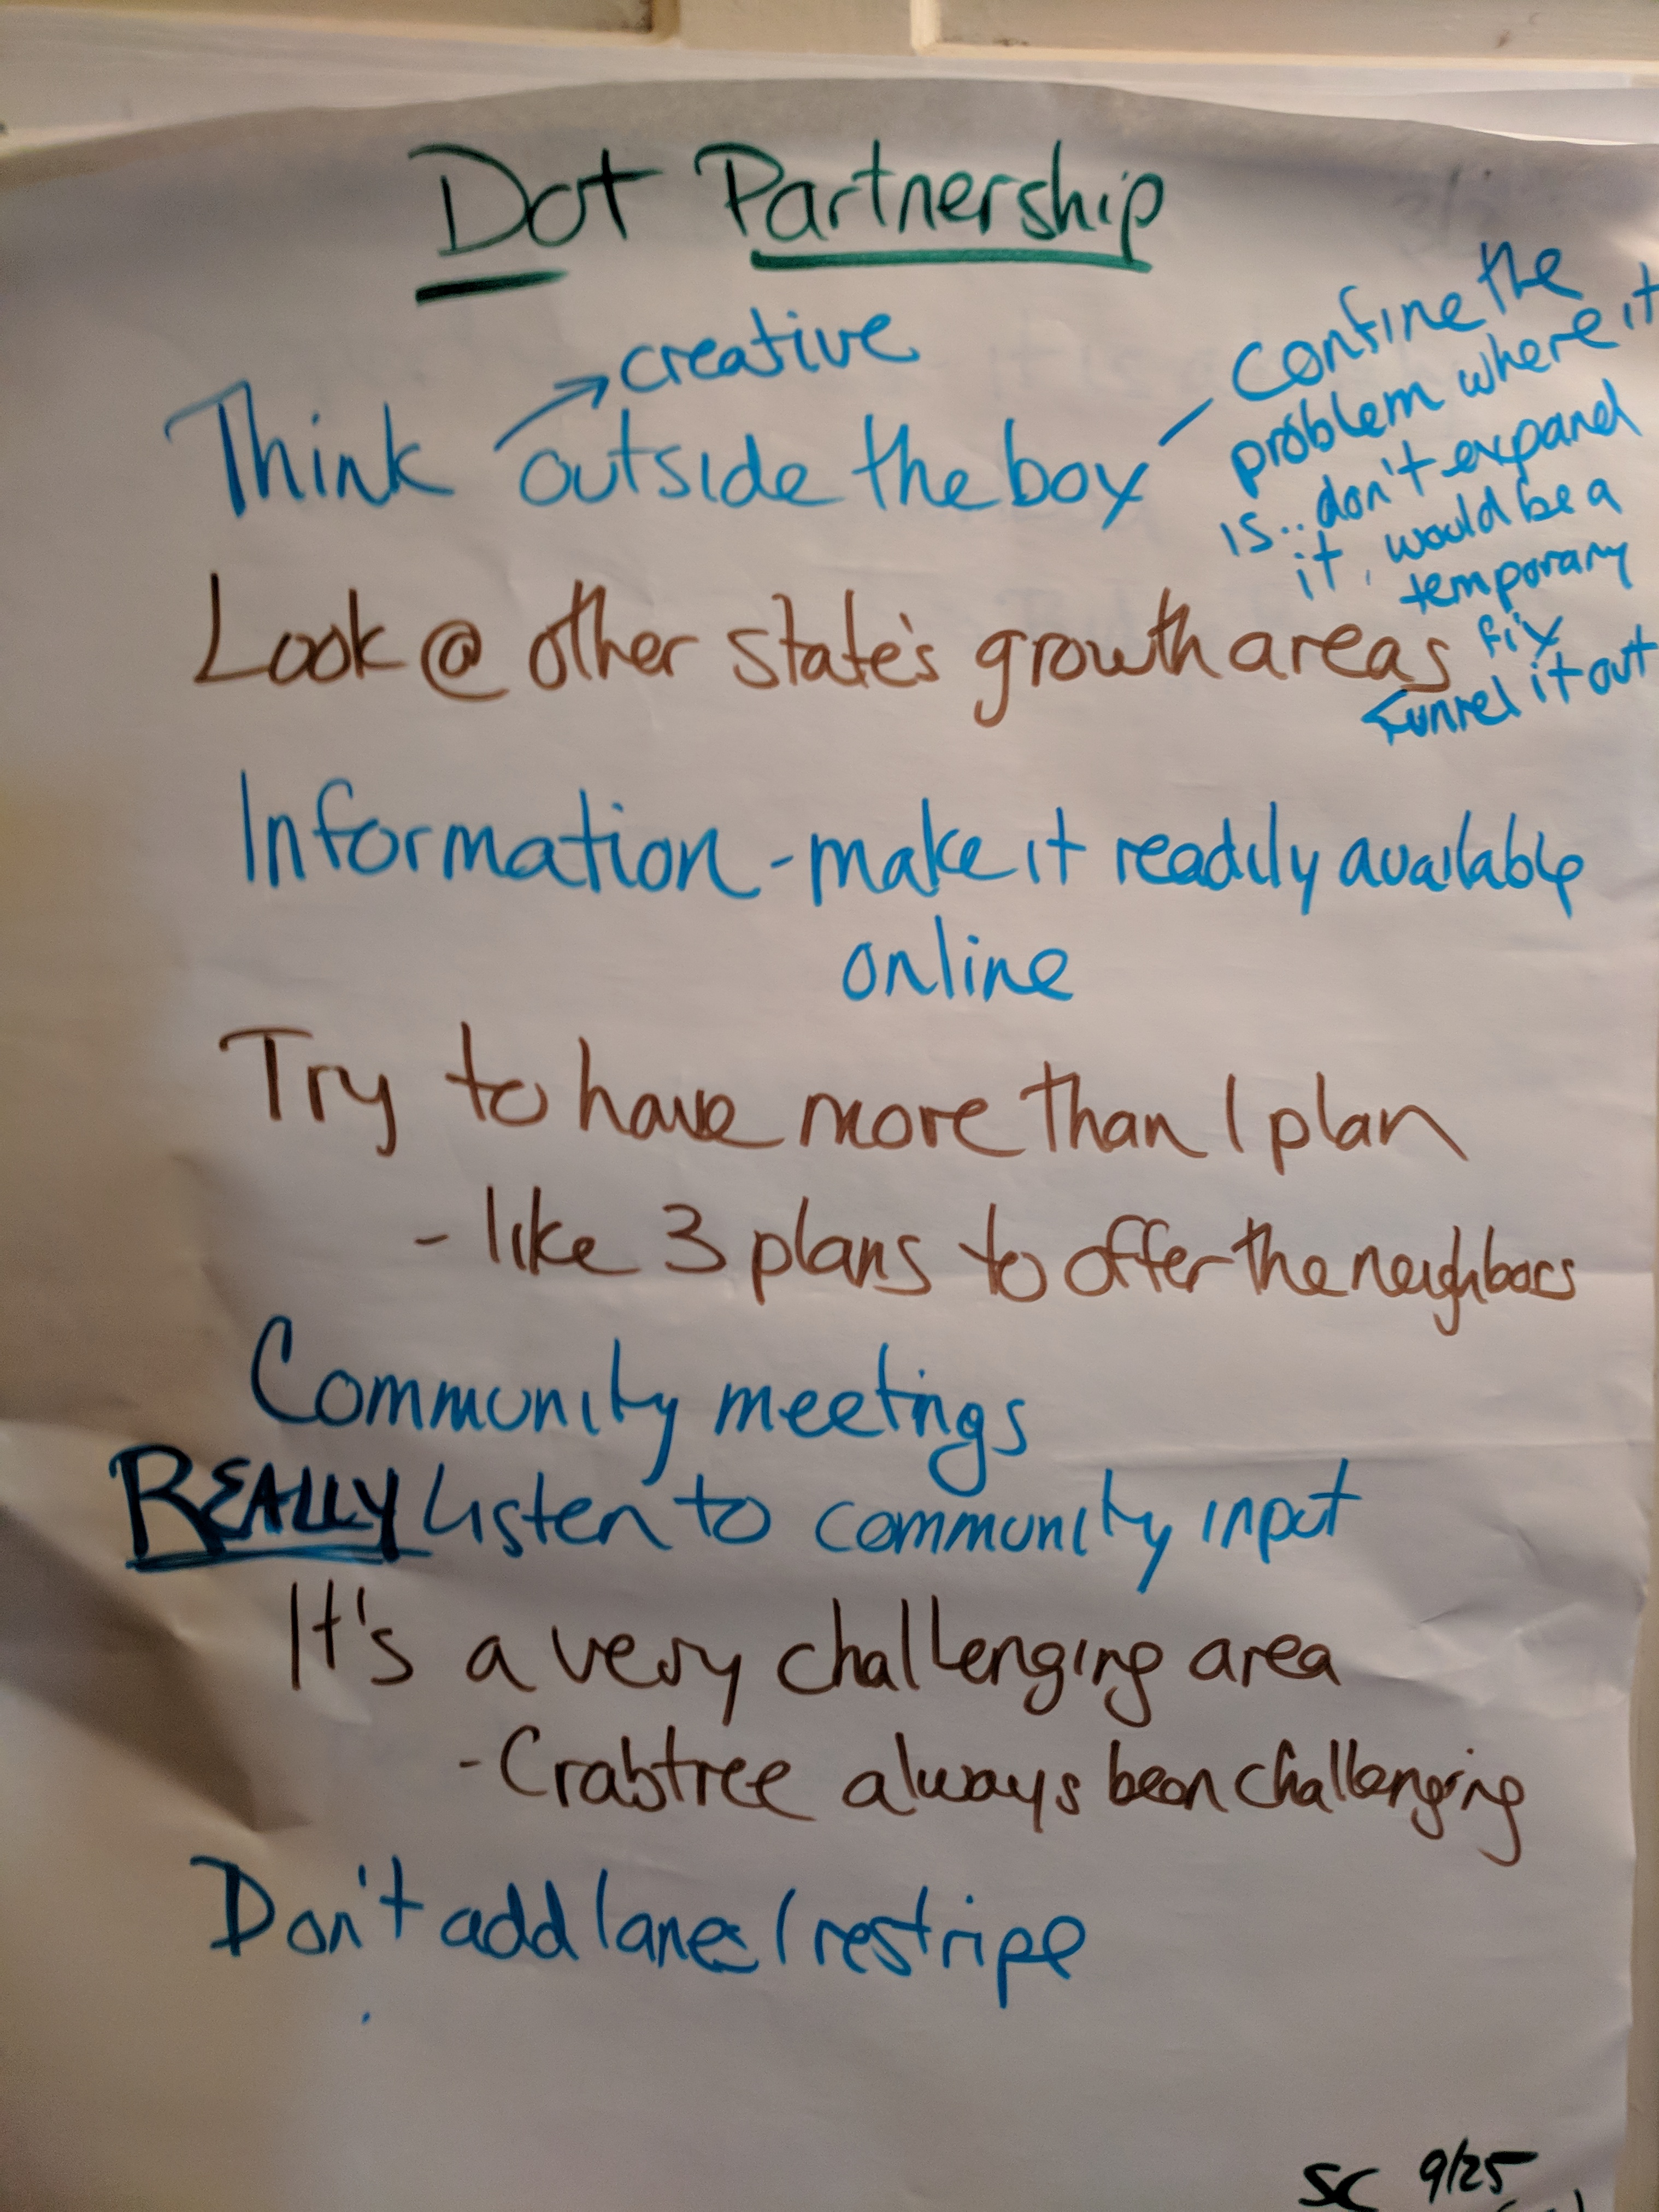 Dot Partnership
creative
Think outside the box
Confine the
problem where it
is.. don't expand
it, would be a
temporary
fix
Funnel it out
Look @ other state's growth areas
Information - make it readily available
online
Try to have more than 1 plan
- like 3 plans to offer the neighbors
Community meetings
REALLY Listen to community input
It's a very challenging area
- Crabtree always been challenging
Don't add lanes / restripe
SC 9/25